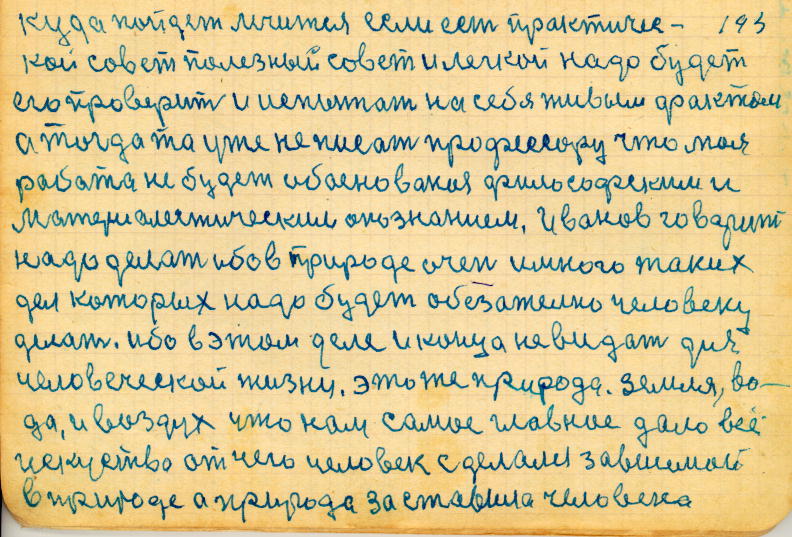 куда пойдет лечится если ест практиче- 193
кой совет полезный совет и легкой надо будет
его проверит и испытат на себя живым фрактом
а тогда та уже не писат профессору что моя
работа не будет обоснования философским и
материалестическим опознанием. Иванов говарит
надо делат ибо в природе очен и много таких
дел которых надо будет обезателно человеку
делат. ибо в этом деле и конца не видат для
человеческой жизни. это же природа. Земля, во-
да, и воздух что нам самое главное дало всё
искуство от чего человек сделался зависимой
в природе а природа заставила человека